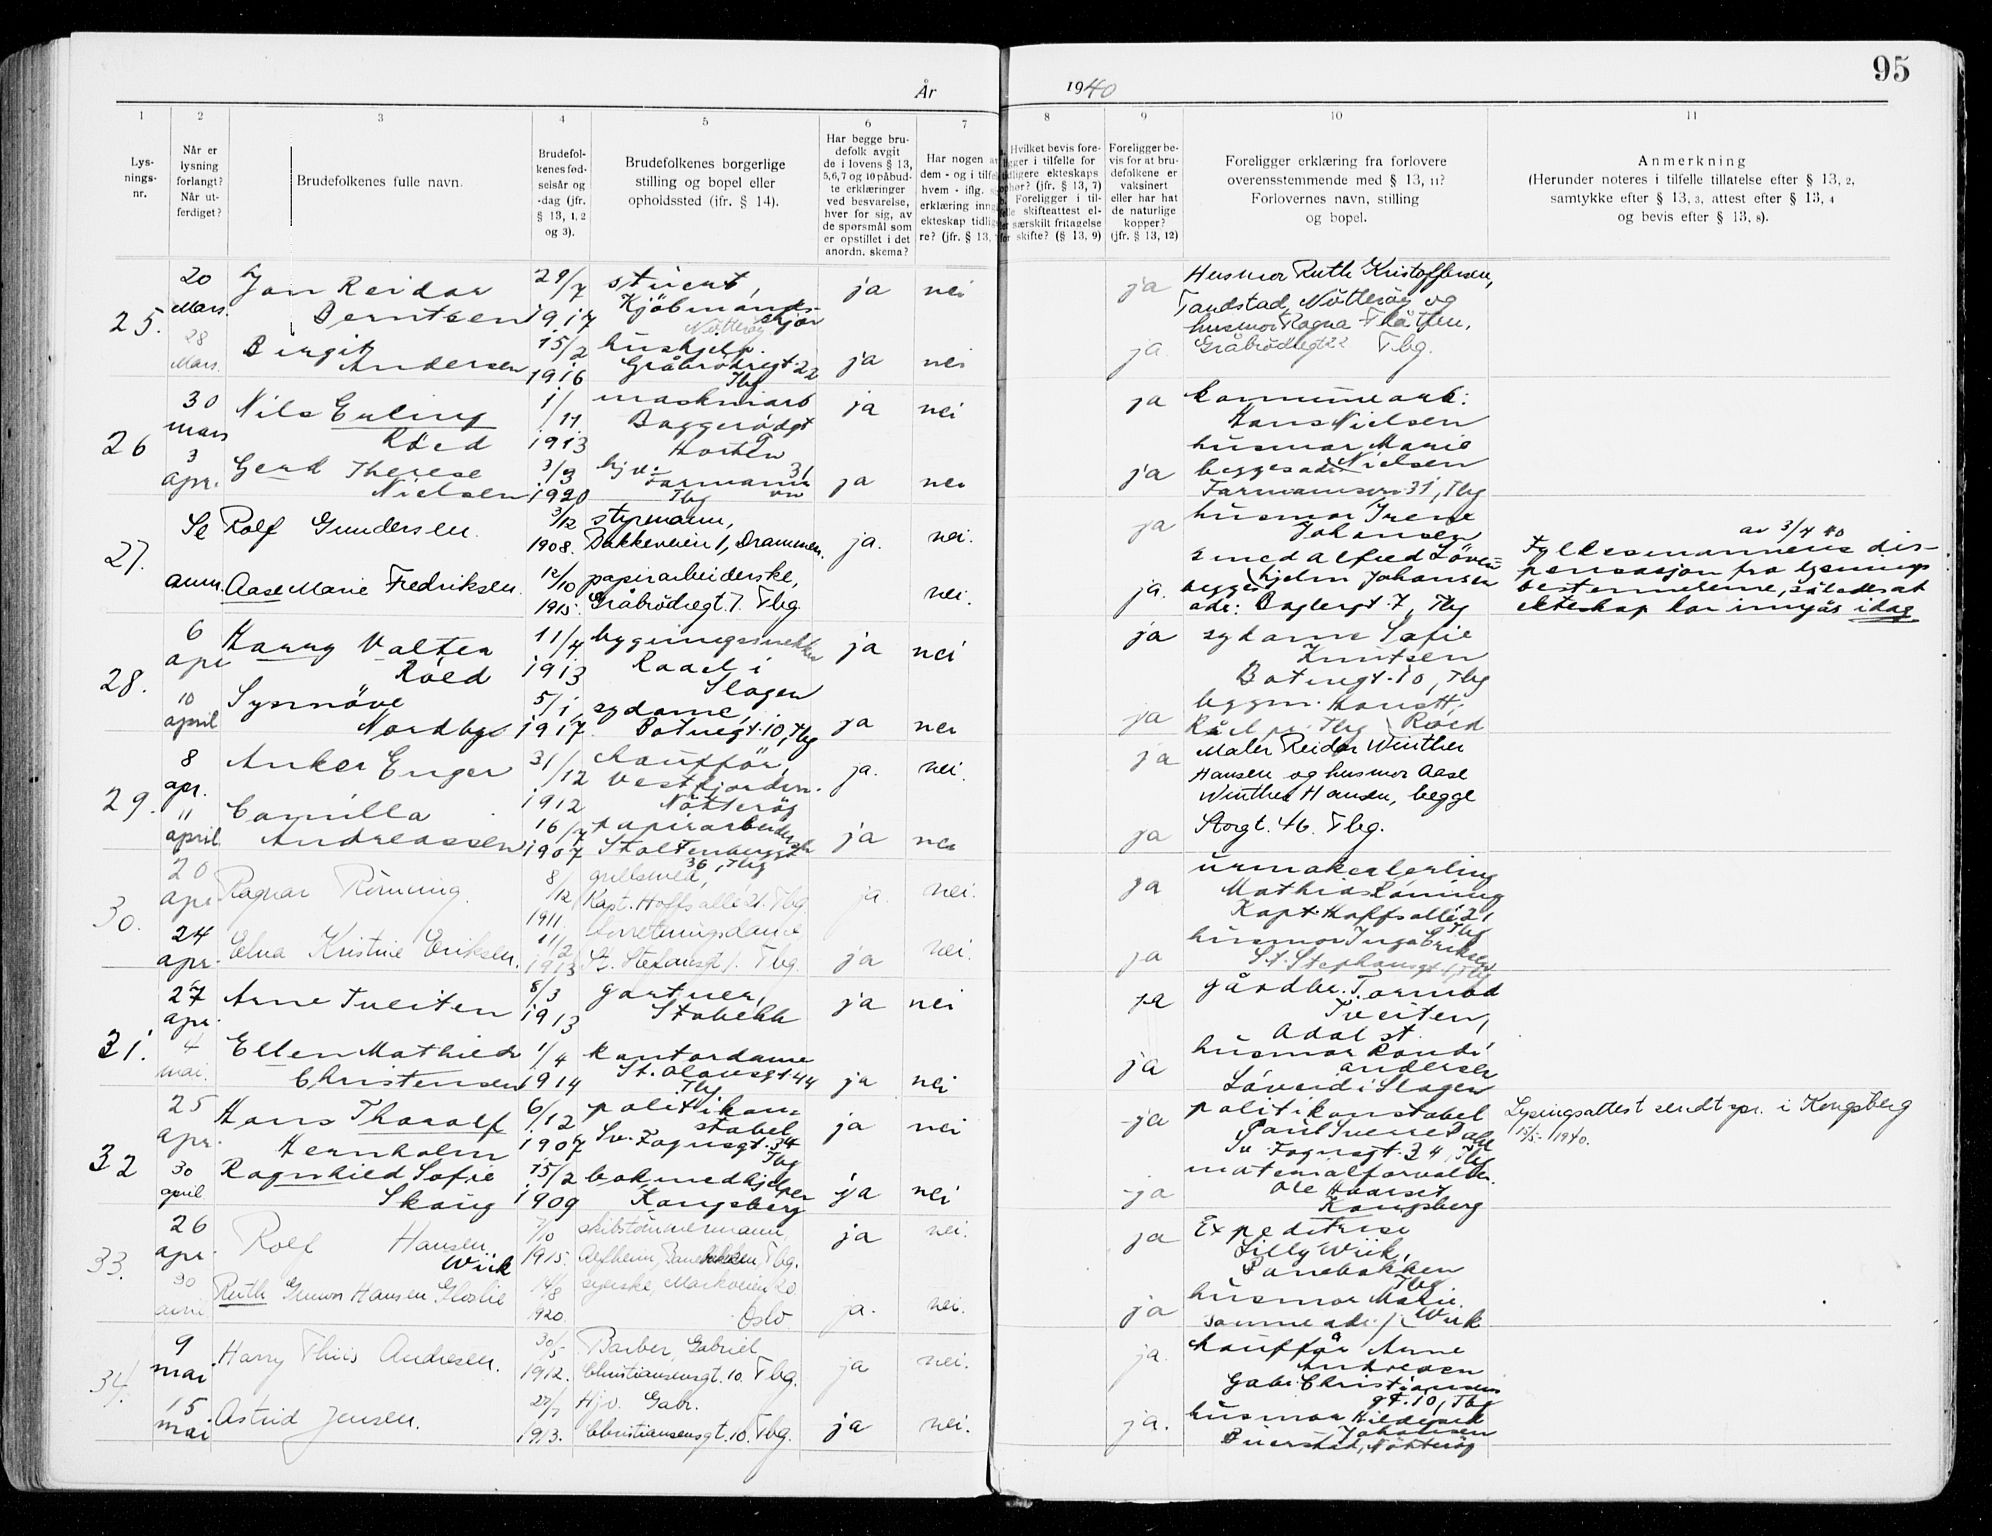 95
År
1940
1
2
3
4
5
6
7
8
9
10
11
Lys-
nings-
nr.
Når er
lysning
forlangt?
Når ut-
ferdiget?
Brudefolkenes fulle navn.
Brudefol-
kenes fød-
selsår og
-dag (jfr.
§ 13, 1, 2
og 3).
Brudefolkenes borgerlige
stilling og bopel eller
opholdssted (ifr. § 14).
Har begge bru-
defolk avgit
de i lovens § 13,
5,6,7 og 10 påbud-
te erklæringer
ved besvarelse,
hver for sig, av
de spørsmål som
er opstillet i det
anordn. skema?
Har nogen
dem - og i
hvem - iflg.
erklæring
ekteskap
re? (jfr. § 13,
Hvilket bevis fore-
ligger i tilfelle for
tidligere ekteskaps
ophør? (jfr. § 13, 7)
Foreligger i til-
felle skifteattest el-
ler særskilt fritagelse
for skifte? (§ 13, 9)
Foreligger be-
vis for at bru-
defolkene er
vaksinert
eller har hat
de naturlige
kopper?
(jfr. § 13, 12)
Foreligger erklæring fra forlovere
overensstemmende med § 13, 11?
Forlovernes navn, stilling
og bopel.
Anmerkning
(Herunder noteres i tilfelle tillatelse efter § 13, 2,
samtykke efter § 13, 3, attest efter § 13, 4
og bevis efter § 13, 8).
25.
20 Mars.
Jan Reidar
Berntsen
29/7 1917
Kjöbmands-
Nötteröy
ja nei
ja
Husmor Ruth Kristoffersen,
Nötteröy og
husmor Ragna
28 Mars.
Birgit
Andersen
15/2 1916
hushjelp.
Gråbrödregt. 22
Tbg
ja nei
ja
Gråbrödregt 22 Tbg.
26
30 mars
Nils Erling
Röed
1/11 1913
maskinarb
Baggerødgt
Horten
ja nei
ja
kommunearb:
Hans Nielsen
husmor Marie
Nielsen
3 apr.
Gerd Therese
Nielsen
3/3 1920
hjv.
Farmannsvn 31
Tbg
ja nei
ja
begges adr
Farmannsvn 31, Tbg
27.
Se anm.
Rolf Gundersen.
3/12 1908.
styrmann,
Bakkeveien 1, Drammen.
ja. nei.
ja
husmor Irene
Johansen
smed Alfred Löven-
hjelm Johansen
av 3/4 40
Fylkesmannens dis-
pensasjon fra lysnings
bestemmelsene, således at
ekteskap kan inngås idag
Aase Marie Fredriksen.
12/10 1915.
papirarbeiderske,
Gråbrödregt. 7. Tbg.
nei.
ja.
begges
adr: Baglergt. 7, Tbg
28.
6 apr
Harry Valter
Röed
11/4 1913
bygningssnekker
Raael i
Slagen
ja nei
ja
sydame Sofie
Knutsen
Batengt. 10, Tbg
10 april
Synnöve
Nordbye
5/1 1917
sydame,
Batengt. 10, Tbg
ja nei
ja
byggm.
Röed
Råel pr. Tbg
29.
8 apr.
Anker Enger
31/12 1912
chauffør,
Vestfjorden.
Nötteröy
ja. nei.
ja
Maler Reidar Winther
Hansen og husmor Aase
Winther Hansen, begge
11 april
Camilla
Andreassen
16/7 1907
papirarbeiderske
Stoltenbergsgt
36, Tbg
ja nei
ja
Storgt. 46. Tbg.
30.
20 apr
Ragnar Rönning.
8/12 1911.
gullsmed,
Kapt. Hoffs allé 21. Tbg.
ja. nei.
ja
urmakerlærling
Mathias Röning
Kapt. Hoffs allé 21
Tbg
24 apr.
Elna Kristine Eriksen.
11/2 1913
forretningsdame
St. Stefansgt. 1. Tbg.
ja nei.
ja
husmor Inga Eriksen
St. Stephansgt 1, Tbg
31.
27 apr.
Arne Tveiten
8/3 1913
gartner,
Stabekk
ja nei
ja
gårdbr. Tormod
Tveiten,
Adal st.
4 mai.
Ellen Mathilde
Christensen
1/4 1914
kontordame
St. Olavsgt 44
Tbg
ja nei
ja
husmor Randi
Andersen
Slagen
32
25 apr.
Hans Tharalf
Hernholm
6/12 1907
politikon-
stabel
Sv. Foynsgt. 34
Tbg
ja nei
ja
politikonstabel
Paul Svene Dahl
Sv. Foynsgt. 34, Tbg
Lysingsattest sendt spr. i Kongsberg
15/5 - 1940.
30 april
Ragnhild Sofie
Skaug
15/2 1909
bokmedhjelper
Kongsberg
ja nei
ja
materialforvalter
Ole
Kongsberg
33.
26 apr.
Rolf Hansen
Wiik
7/10 1915.
skibstömmermann,
Banebakken Tbg.
ja nei.
ja
Expeditrise
Lilly Wiik,
Banebakken
Tbg
30 april
Ruth Gunvor Hansen Gloslie
14/8 1920.
syerske, Markveien 20
Oslo.
ja. nei.
ja
husmor Marie
Wiik
samme adr.
34.
9 mai
Harry Thiis Andresen.
30/5 1912.
Barber, Gabriel
Christiansensgt. 10. Tbg.
ja nei.
ja.
chauffør Arne
Andresen
Gabr. Christiansens
gt. 10, Tbg
15 mai
Astrid Jensen.
27/7 1913.
Hjv. Gabr.
Christiansensgt. 10. Tbg.
ja nei.
ja.
husmor Hildegard
Johansen
Buerstad, Nötteröy